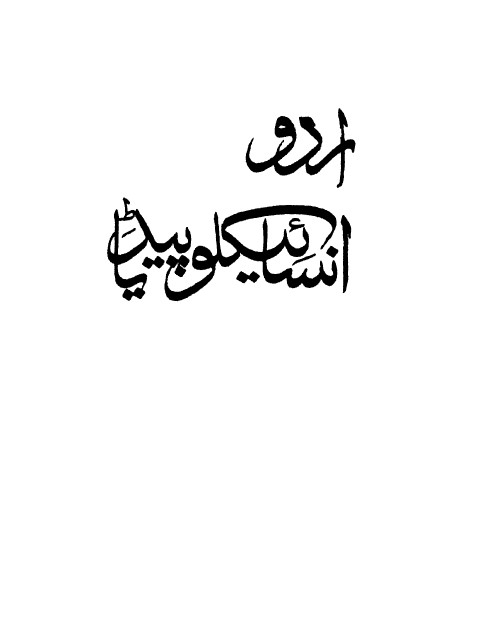 اردو
انسائیکلوپیڈیا